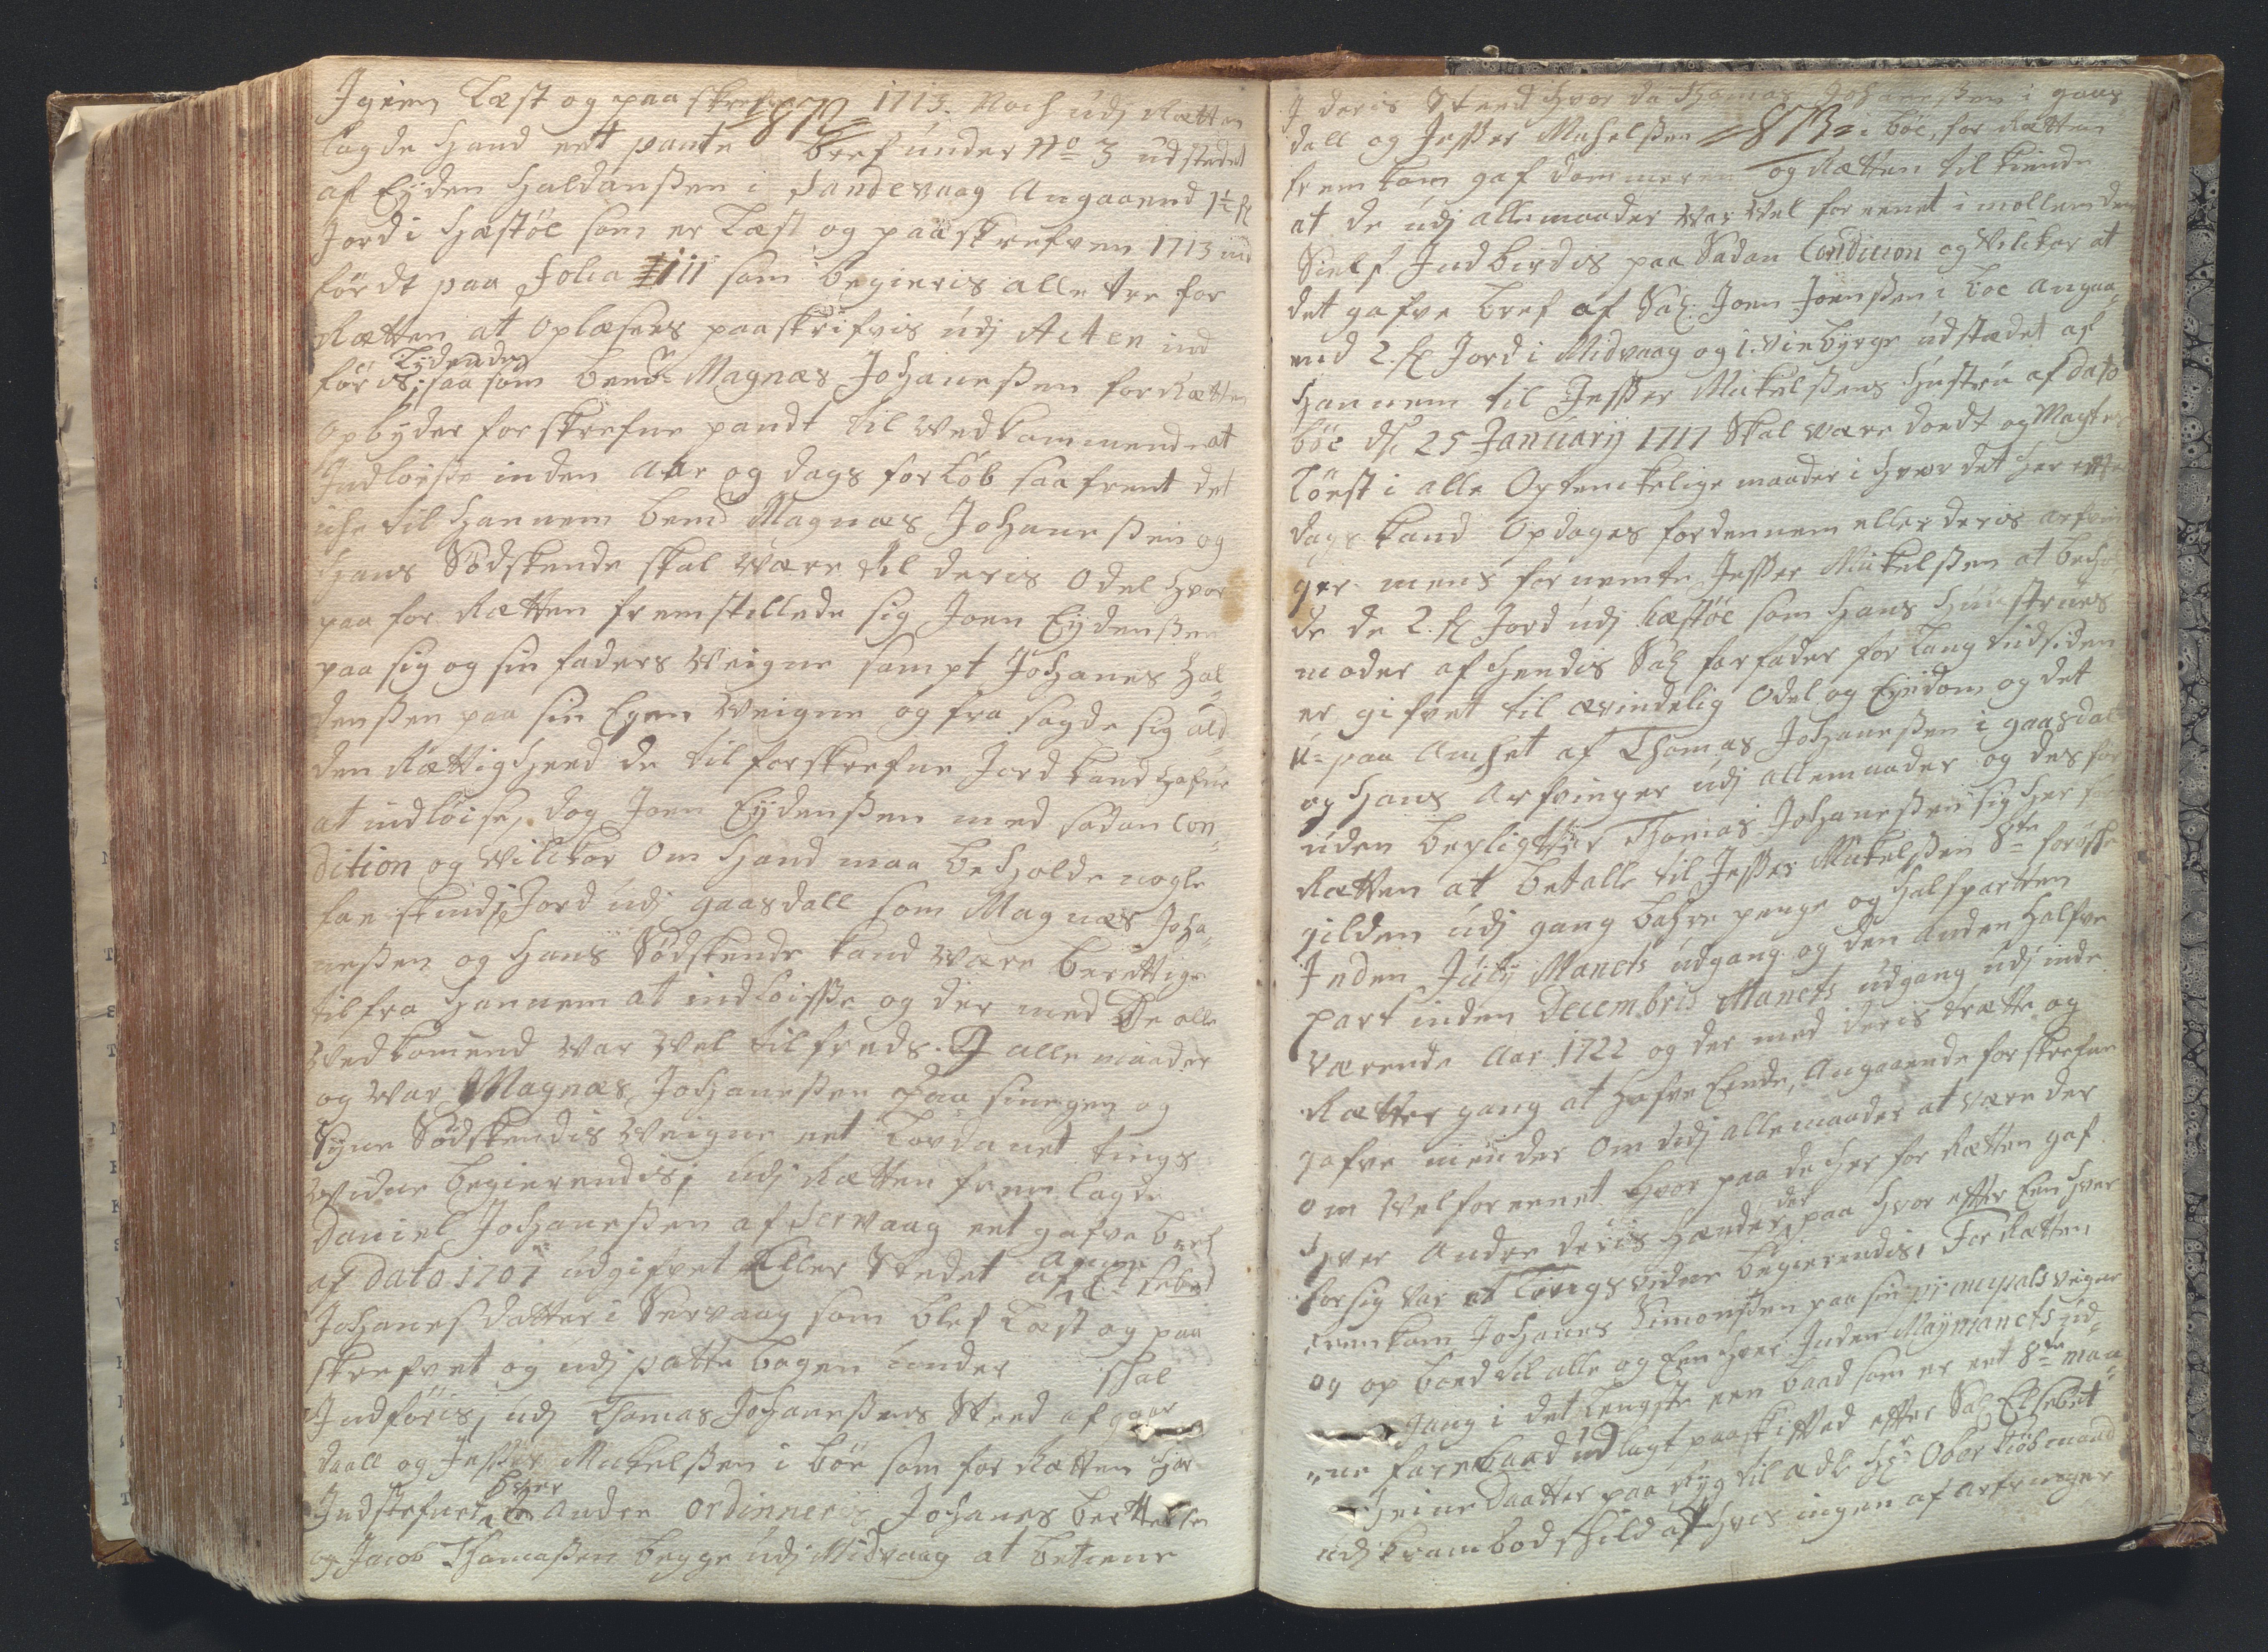 Igien Læst og paaskrefven 1713. Noch udj Rætten
=872=
lagde hand eet pante bref under No 3 udstedet
af Eyden Haldansßen i Sandevaag Angaaend 1½ fl
Jord i Hæstøe som er Læst og paaskrefven 1713 ind
ført paa Folia 111 som begieris alle tre for
Rætten at Oplæses paaskrifvis udj Acten ind
føris, Lydendes saa som bemte Magnas Johaneßen for Rætten
Opbyder forskrefne pandt til wedkommende at
Indløyse inden Aar og dags forløb saa fremt det
iche til hannem bemte Magnas Johaneßen og
hans Södskende skal være til deris Odel hvor
paa for Rætten fremstillede sig Joen Eydenßen
paa sig og sin faders Veigne sampt Johanes Hal
denßen paa sin Egen Veigne og fra sagde sig ald
den Rættighed de til forskrefne Jord kand hafve
at indløise, dog Joen Eydenßen med sadan Con
dition og Vilckor Om hand maa beholde nogle
faa skinds Jord udj gaasdall som Magnas Joha
neßen og hans Södskende kand være berettiget
til fra hannem at indløiße og der med De alle
Vedkomend var Vel tilfreds. I alle maader
og var Magnas Johaneßen paa sin egen og
Syne Södskendis Veigne eet Lovdanet tings
Vidne begierendis; udj Rætten frem lagde
Daniel Johaneßen af Servaag eet gafve bref
af Dato 1707 udgifvet Eller Stedet af Anne Elsebet
Johanes datter i Servaag som blef Læst og paa
skrefvet og udj patte bogen under skal
Indføris, udj Thomas Johaneßens Sted af gaas
daall og Jeßer Mickelßen i bøe som for Rætten har
Indstefnet hver Andre ordinneris Johanes bertelsen
og Jacob Thomaßen begge udj Midvaag at betiene
I deris Steed hvor da Thomas Johaneßen i gaas
=873=
dall og Jeßer Michelßen i bøe, for Rætten
fremkom gaf dommeren og Rætten tilkiende
at de udj alle maader var Vel forenet i mellem dem
Sielf Indbirdis paa Sadan Condition og Vilckor at
det gafve bref af Sal: Joen Joenßen i bøe Angaa
end 2. fl Jord i Midvaag og i Viebyrge udstædet af
hannem til Jeßer Mickelßens Hustru af dato
bøe d. 25 Januarij 1717 Skal være doedt og Magtes
Løest i alle Optenckelige maader i hvor det her efter
dags kand Opdages for dennem eller deris arfvin
ger mens fornemte Jeßer Mickelßen at behol
de de 2. fl Jord udj Hæstøe som hans Hustrues
moder af hendis Sal farfader for Lang tid siden
er gifvet til ævindelig Odel og Eyendom og det
u-paa Anchet af Thomas Johaneßen i gaasdal
og hans Arfvinger udj allemaader og des for
uden bepligtter Thomas Johaneßen sig her for
Rætten at betalle til Jeßer Mickelßen 8te forøste
gilden udj gang bahre penge og halfpartten
Inden July Manets udgang og den anden halfve
part inden Decembris Manets udgang udj inde
værende Aar 1722 og der med deris trætte og
Rættergang at hafve Ende, Angaaende forskrefne
gafve minder Om udj allemaader at være der
om Vel forenet Hvor paa de her for Rætten gaf
hver Andre deris Hænder der paa hvor efter Een hver
for sig var et tings vidne begierendis. For Rætten
fremkom Johanes Simonßen paa sin principals vegne
og op boed til alle og Een hver Inden Maymanets ud
gang i det Længste een baad som er eet 8te maa
ne fare baad udlagt paa skifted efter Sal Elsebet
Heine Daatter paa Ryg til Ædle Hr Ober Kiöbmand
udj krambod skild af Hvis ingen af Arfvinger